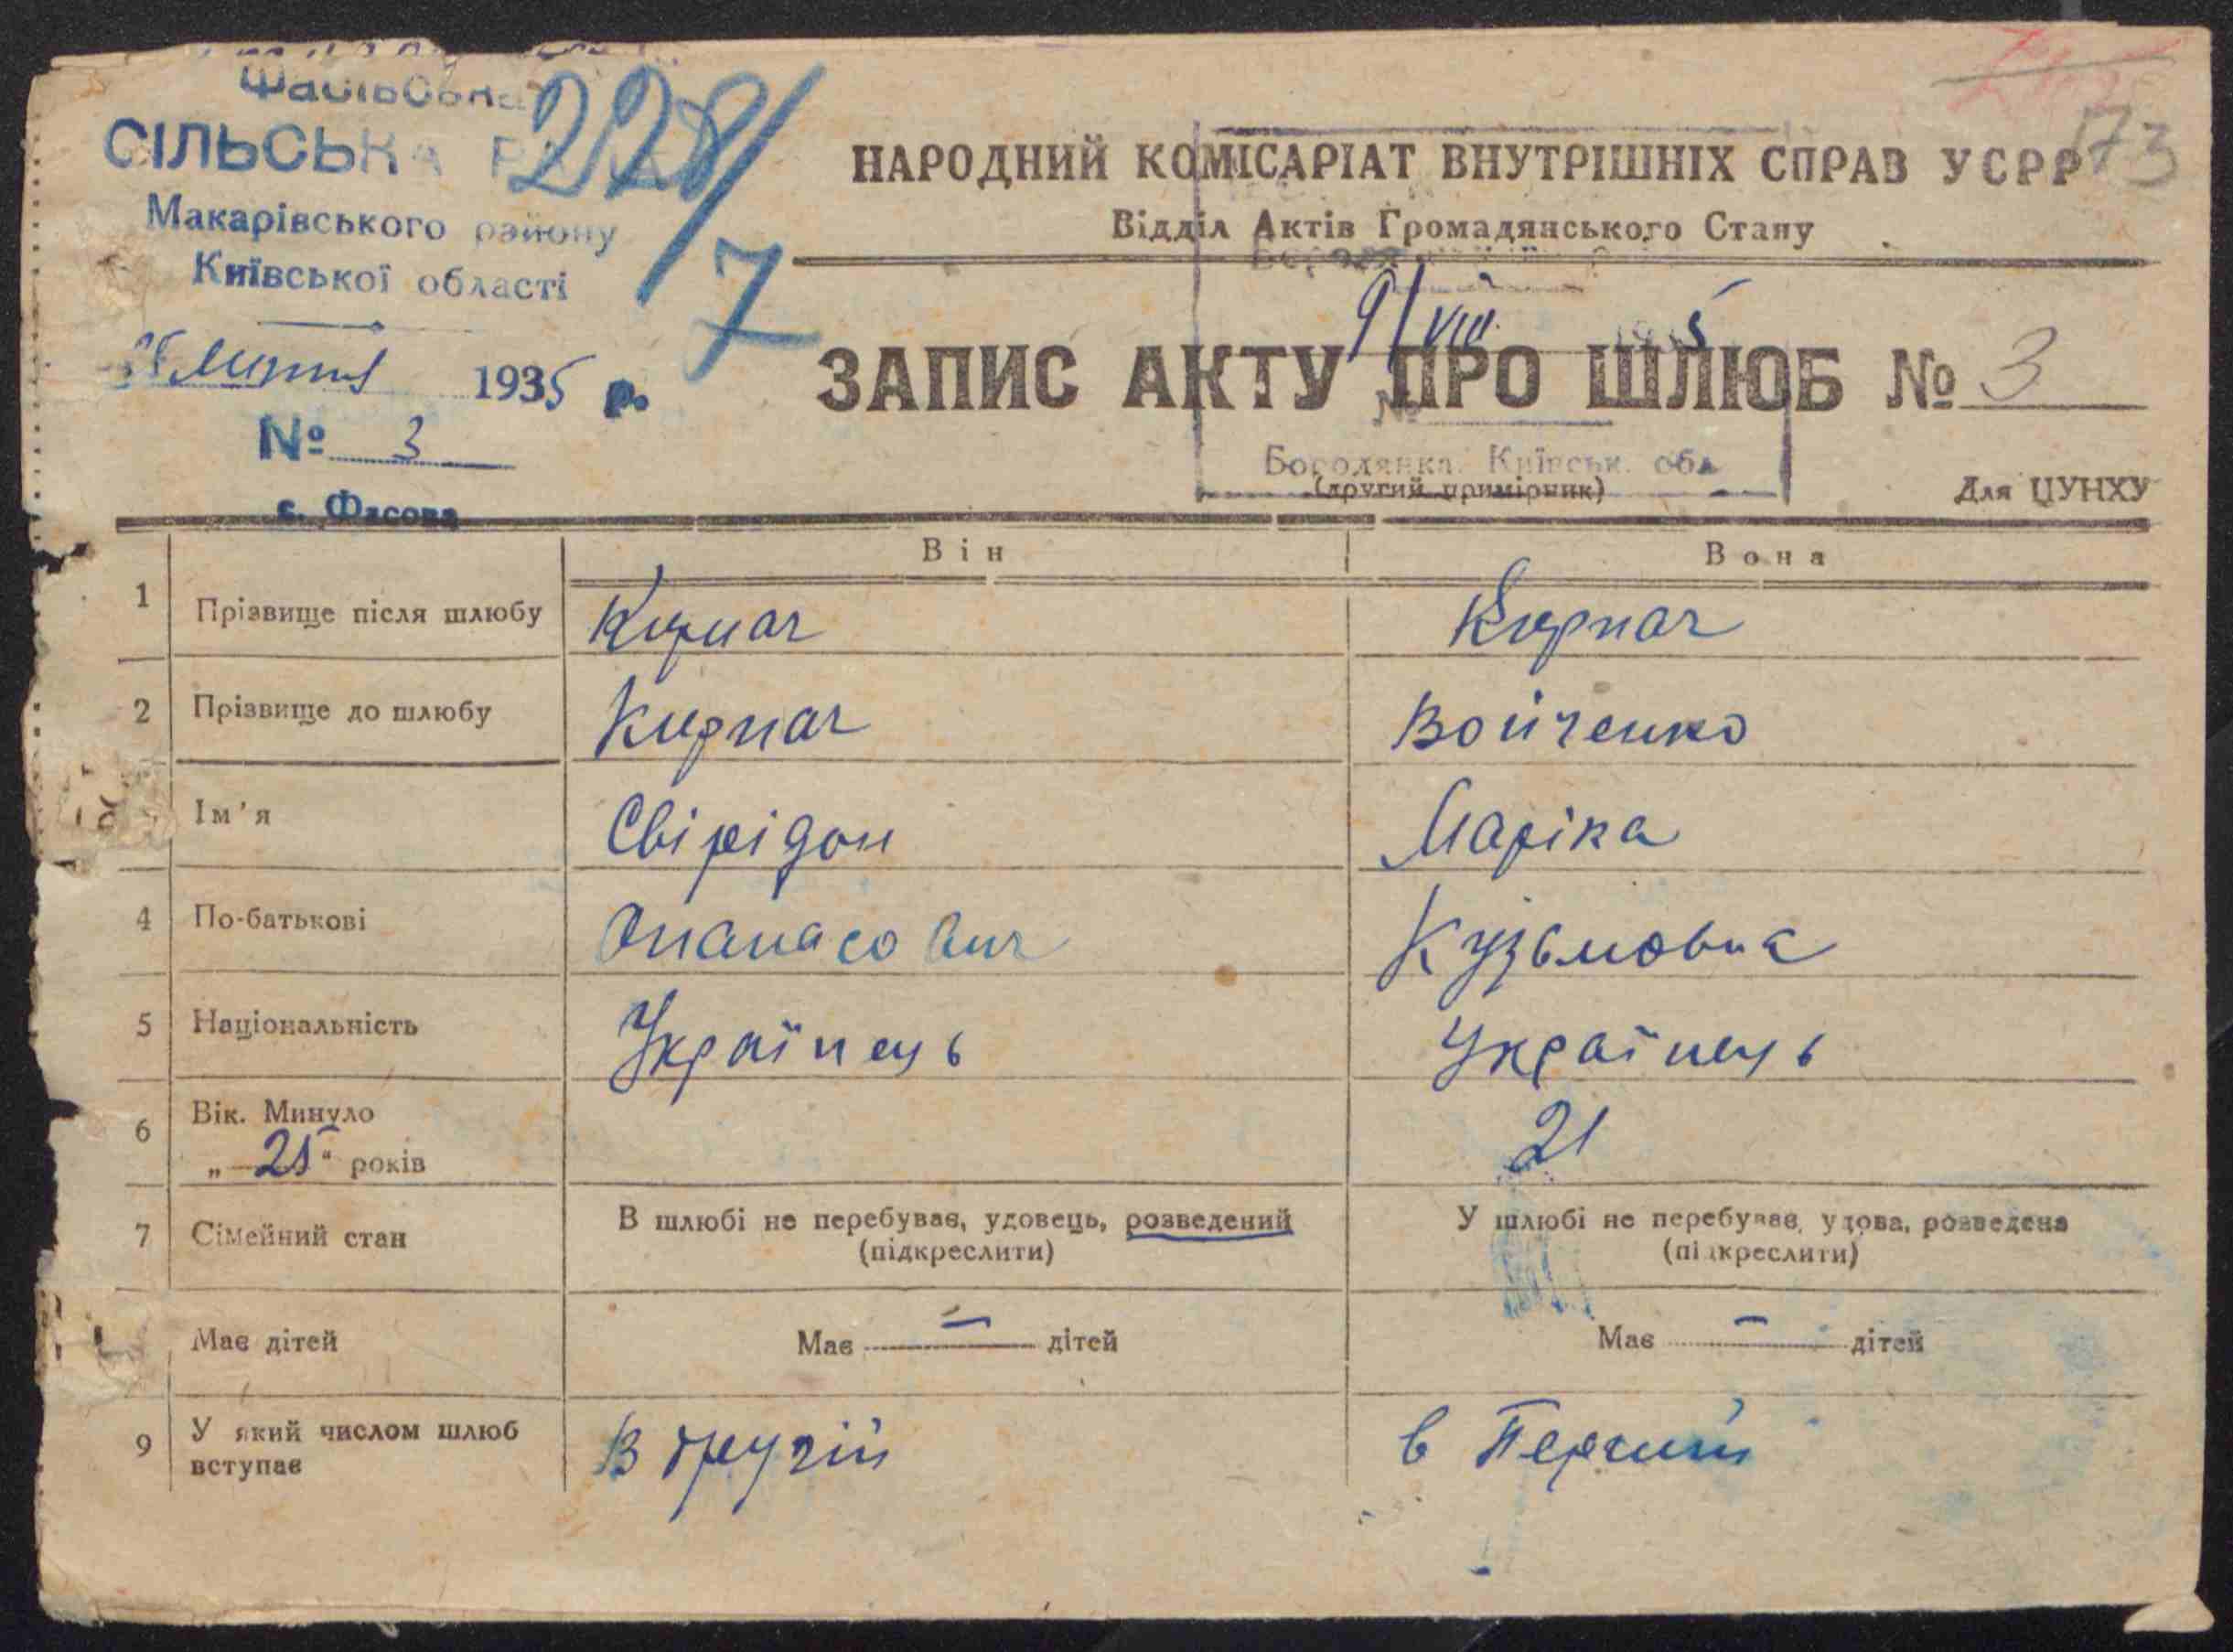 СІЛЬСЬКА РАДА
Макарівського району
Київської області
1935 р.
№ 3
с. Фасова
228/7
173
НАРОДНИЙ КОМІСАРІАТ ВНУТРІШНІХ СПРАВ УСРР
Відділ Актів Громадянського Стану
9/VIII 1935
ЗАПИС АКТУ ПРО ШЛЮБ № 3
№
Бородянка Київськ. обл
(другий примірник)
Для ЦУНХУ
Він Вона
1 Прізвище після шлюбу Кирпач Кирпач
2 Прізвище до шлюбу Кирпач Войченко
Ім'я Свірідон Маріка
4 По-батькові Опанасович Кузьмовна
5 Національність Українець Українець
6 Вік. Минуло
„25“ років 21
7 Сімейний стан В шлюбі не перебував, удовець, розведений У шлюбі не перебуває, удова, розведена
(підкреслити) (підкреслити)
Має дітей Має — дітей Має — дітей
9 У який числом шлюб вступає В другій в Перший